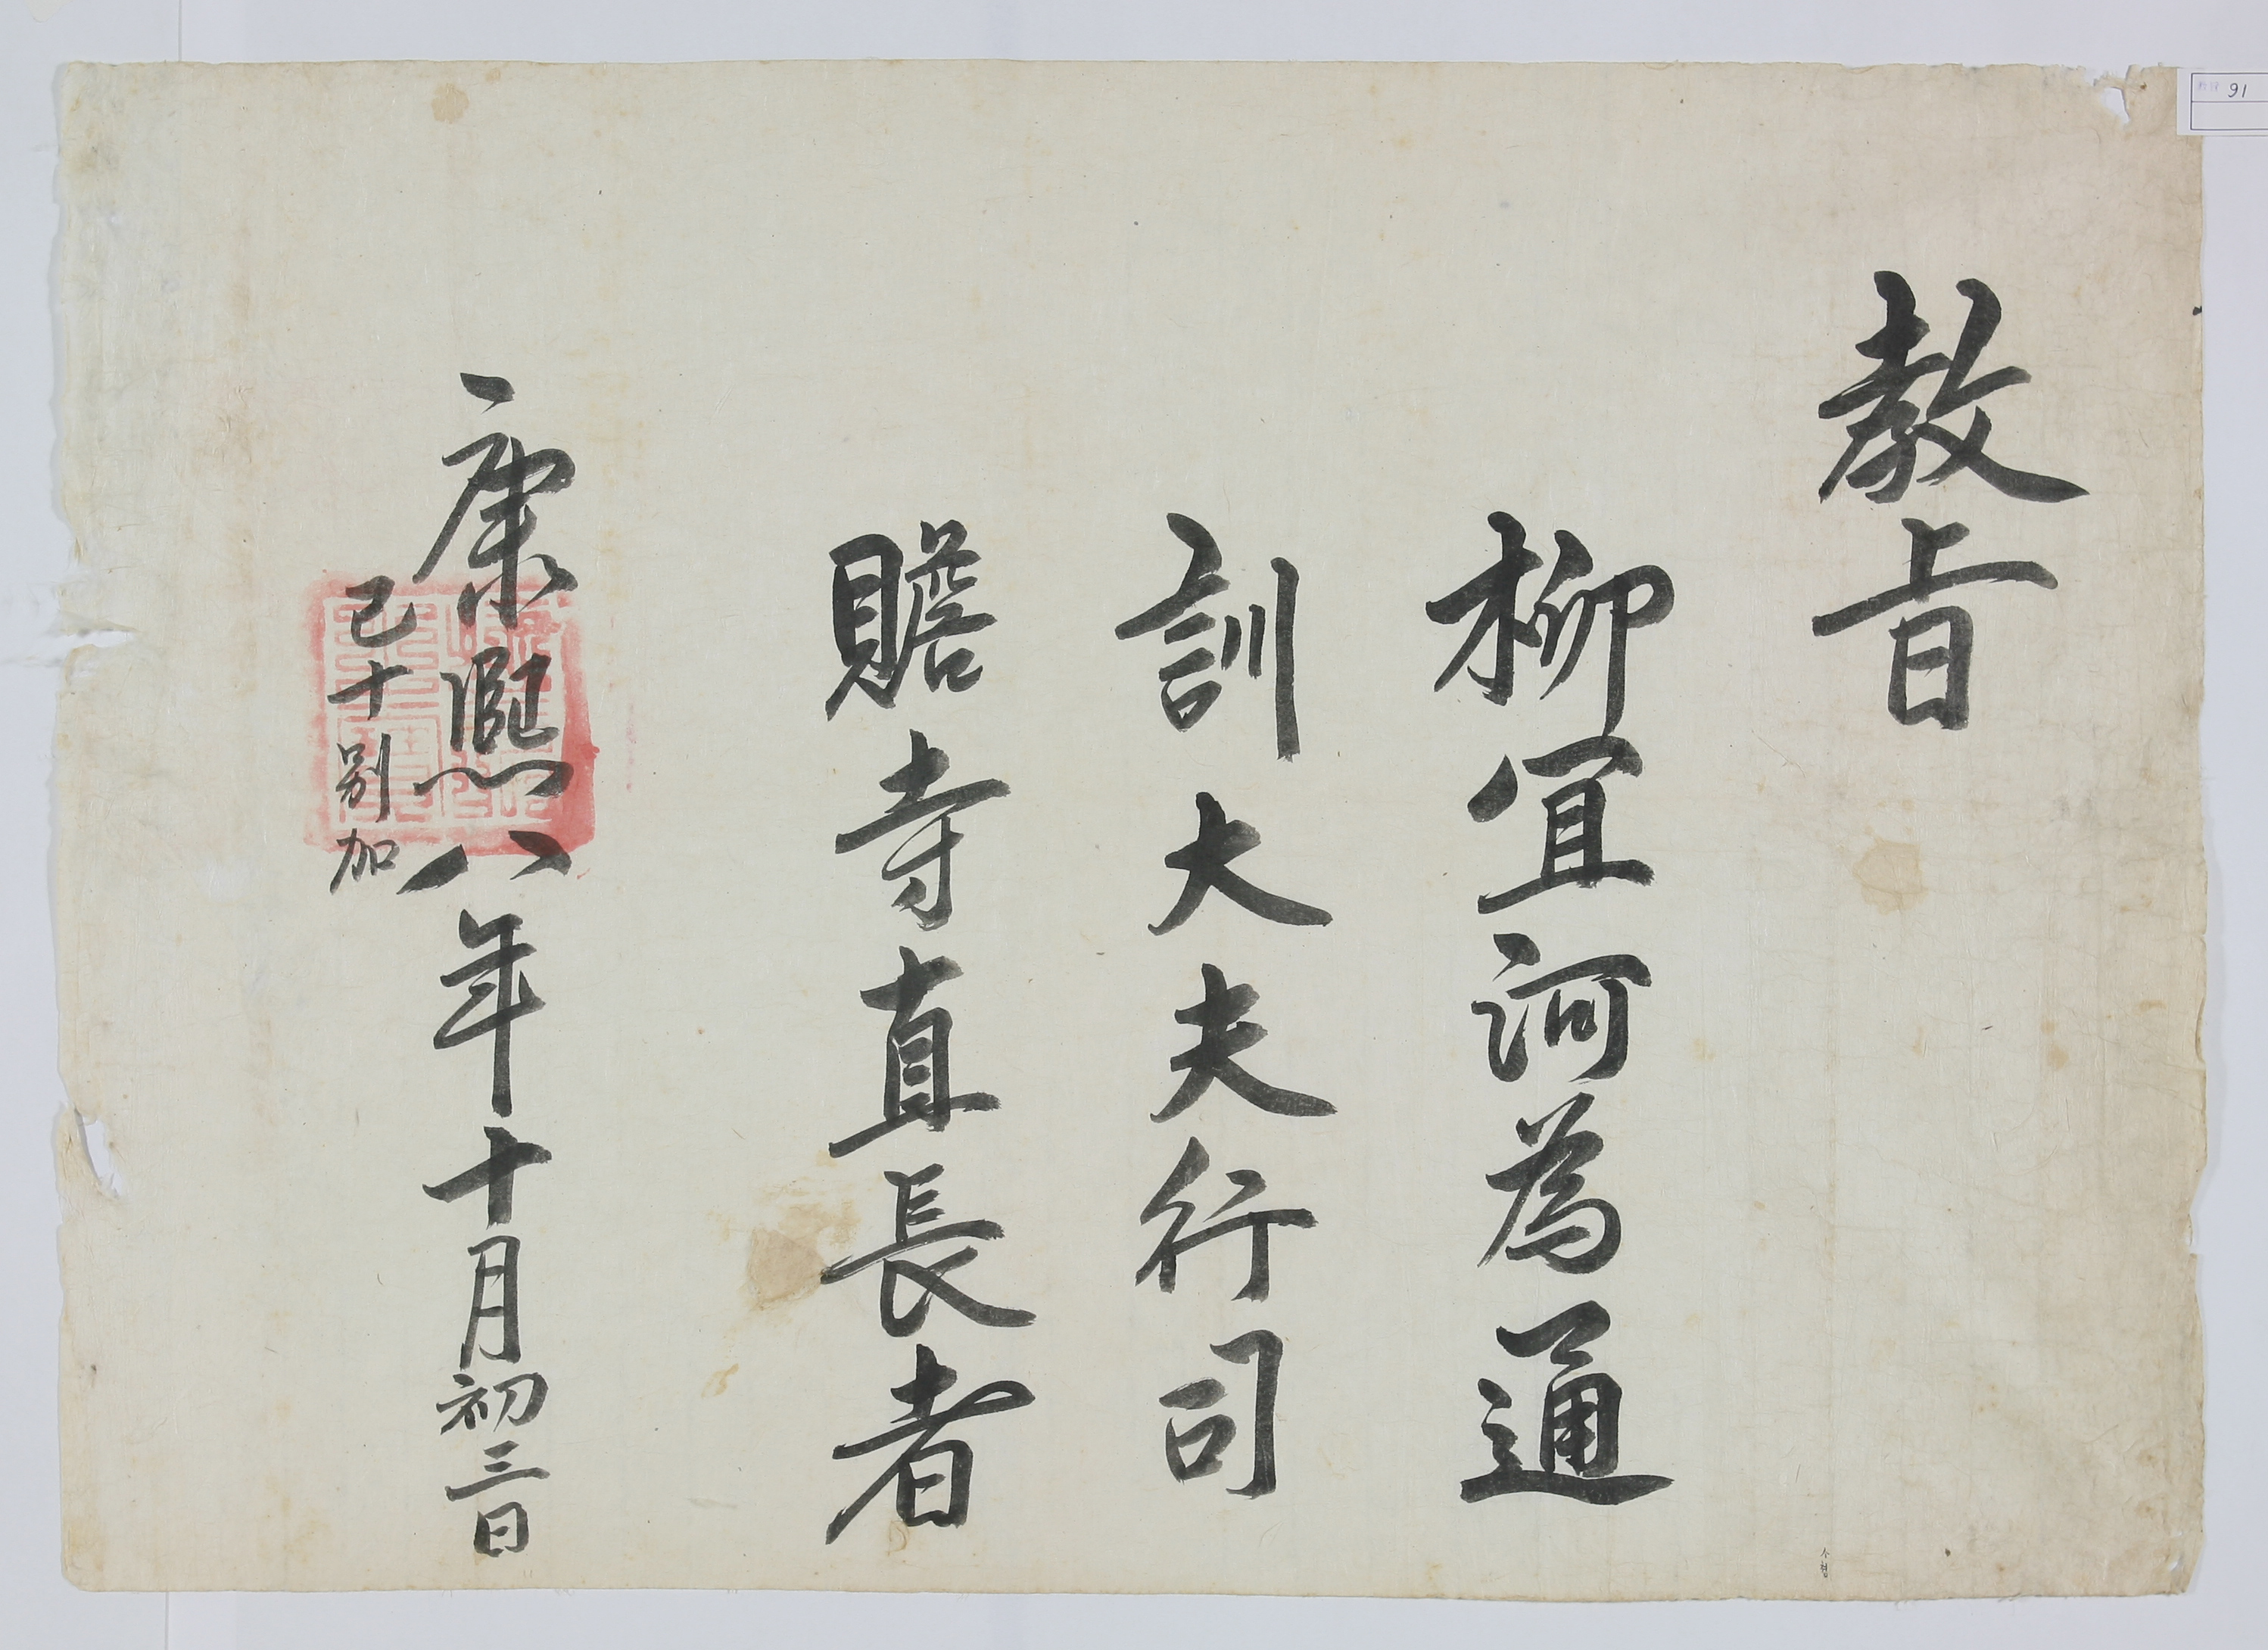 教旨
柳宜河為通
訓大夫行司
贍寺直長者
康熙八年十月初三日
己十別加
91